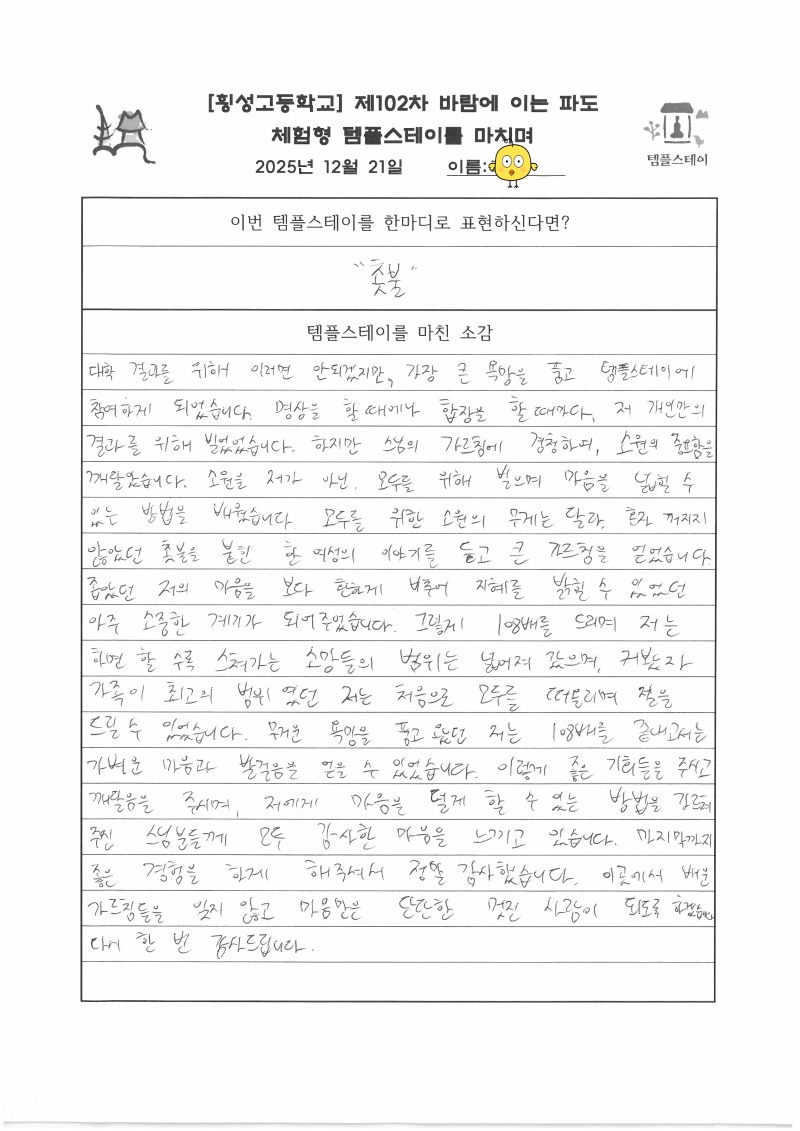 [횡성고등학교] 제102차 바람에 이는 파도
체험형 템플스테이를 마치며
2025년 12월 21일 이름:
템플스테이
이번 템플스테이를 한마디로 표현하신다면?
"촛불"
템플스테이를 마친 소감
대학 결과를 위해 이러면 안되겠지만, 가장 큰 욕망을 품고 템플스테이에
참여하게 되었습니다. 명상을 할 때에나 합장을 할 때마다, 저 개인만의
결과를 위해 빌었었습니다. 하지만 스님의 가르침에 경청하여, 소원의 중요함을
깨달았습니다. 소원을 저가 아닌, 모두를 위해 빌으며 마음을 넓힐 수
있는 방법을 배웠습니다. 모두를 위한 소원의 무게는 달라, 혼자 꺼지지
않았던 촛불을 붙힌 한 여성의 이야기를 듣고 큰 가르침을 얻었습니다.
좁았던 저의 마음을 보다 환하게 비추어 지혜를 밝힐 수 있었던
아주 소중한 계기가 되어주었습니다. 그렇게 108배를 드리며 저는
하면 할 수록 스쳐가는 소망들의 범위는 넓어져 갔으며, 커봤자
가족이 최고의 범위였던 저는 처음으로 모두를 떠올리며 절을
드릴 수 있었습니다. 무거운 욕망을 품고 왔던 저는 108배를 끝내고서는
가벼운 마음과 발걸음을 얻을 수 있었습니다. 이렇게 좋은 기회들을 주시고
깨달음을 주시며, 저에게 마음을 덜게 할 수 있는 방법을 가르쳐
주신 스님분들께 모두 감사한 마음을 느끼고 있습니다. 마지막까지
좋은 경험을 하게 해주셔서 정말 감사했습니다. 이곳에서 배운
가르침들을 잊지 않고 마음만은 단단한 멋진 사람이 되도록 하겠습니다.
다시 한 번 감사드립니다.